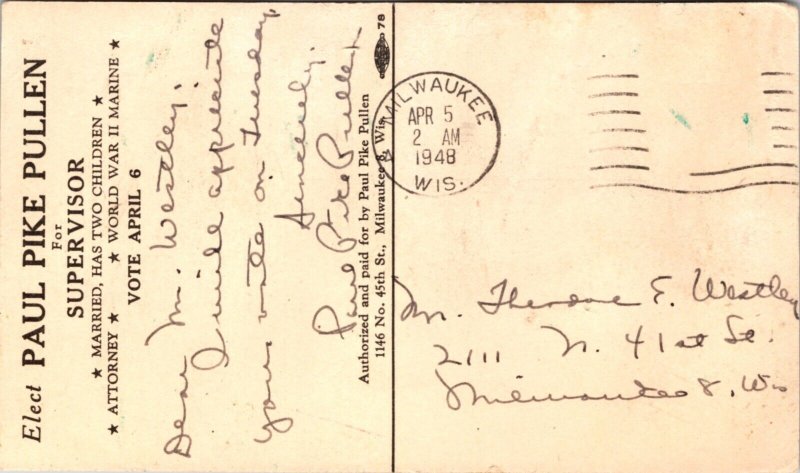 Elect PAUL PIKE PULLEN
For
SUPERVISOR
★ MARRIED, HAS TWO CHILDREN ★
★ ATTORNEY ★ ★ WORLD WAR II MARINE ★
VOTE APRIL 6
Dear Mr. Westley:
I will appreciate
your vote on Tuesday.
Sincerely,
Paul Pike Pullen
Authorized and paid for by Paul Pike Pullen
1146 No. 45th St., Milwaukee 8, Wis.
78
MILWAUKEE
APR 5
2 AM
1948
WIS.
Mr. Theodore E. Westley
2111 N. 41st St.
Milwaukee 8, Wis